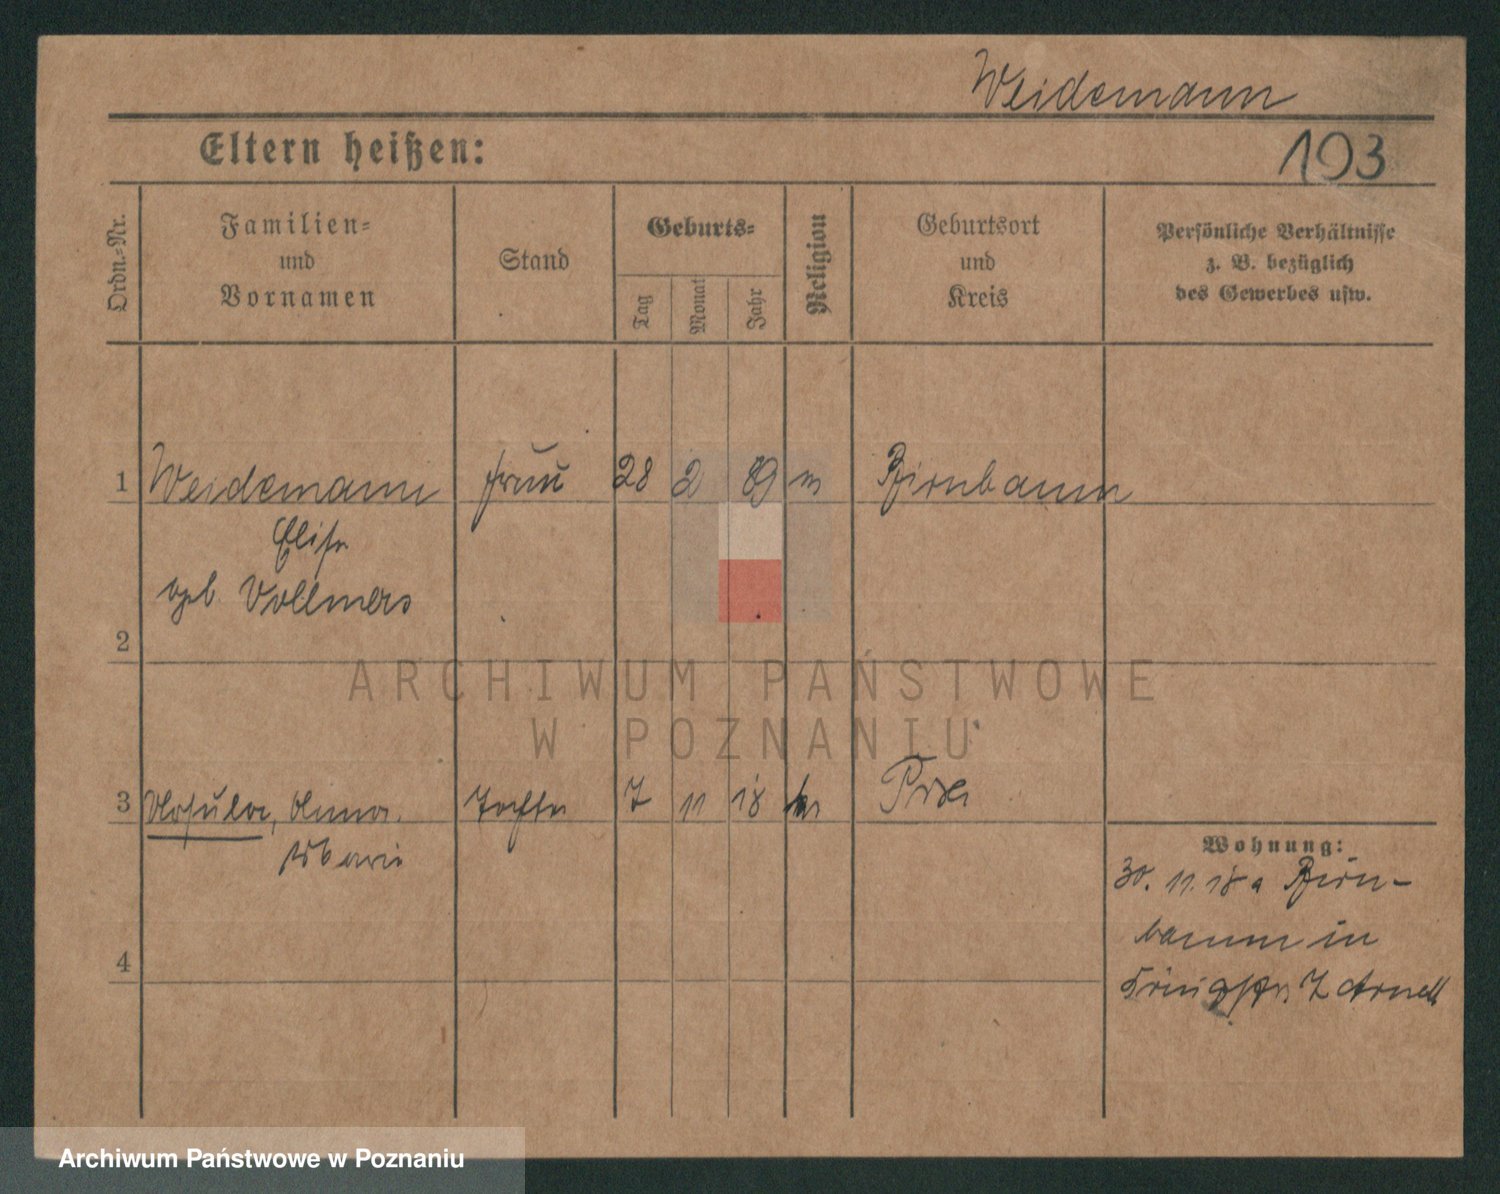 Weidemann
Eltern heißen:
193
Ordn.-Nr.
Familien-
und
Vornamen
Stand
Geburts-
Tag
Monat
Jahr
Religion
Geburtsort
und
Kreis
Persönliche Verhältnisse
z. B. bezüglich
des Gewerbes usw.
1 Weidemann Frau 28 2 89 Birnbaum
Elise
geb. Vollmers
2
ARCHIWUM PAŃSTWOWE
W POZNANIU
3 Ursula, Anna Tochter 7 11 18
Marie
Wohnung:
30. 11. 18 a Birn-
baum in
Königstr. 7
4
Archiwum Państwowe w Poznaniu